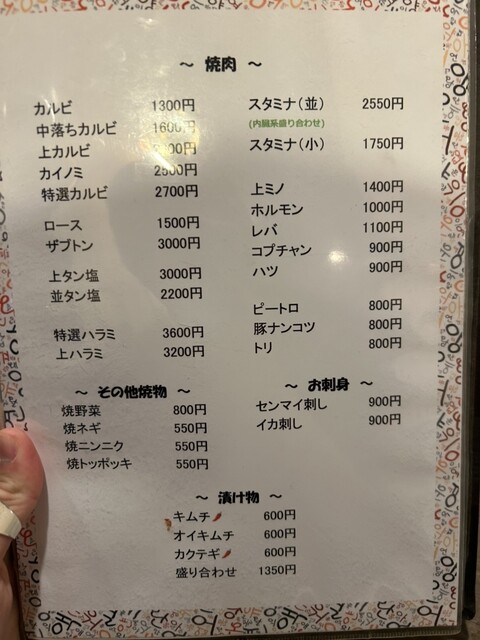 ～ 焼肉 ～
カルビ 1300円
中落ちカルビ 1600円
上カルビ
カイノミ 2500円
特選カルビ 2700円
ロース 1500円
ザブトン 3000円
上タン塩 3000円
並タン塩 2200円
特選ハラミ 3600円
上ハラミ 3200円
スタミナ（並） 2550円
(内臓系盛り合わせ)
スタミナ（小） 1750円
上ミノ 1400円
ホルモン 1000円
レバ 1100円
コプチャン 900円
ハツ 900円
ピートロ 800円
豚ナンコツ 800円
トリ 800円
～ その他焼物 ～
焼野菜 800円
焼ネギ 550円
焼ニンニク 550円
焼トッポッキ 550円
～ お刺身 ～
センマイ刺し 900円
イカ刺し 900円
～ 漬け物 ～
キムチ 600円
オイキムチ 600円
カクテギ 600円
盛り合わせ 1350円